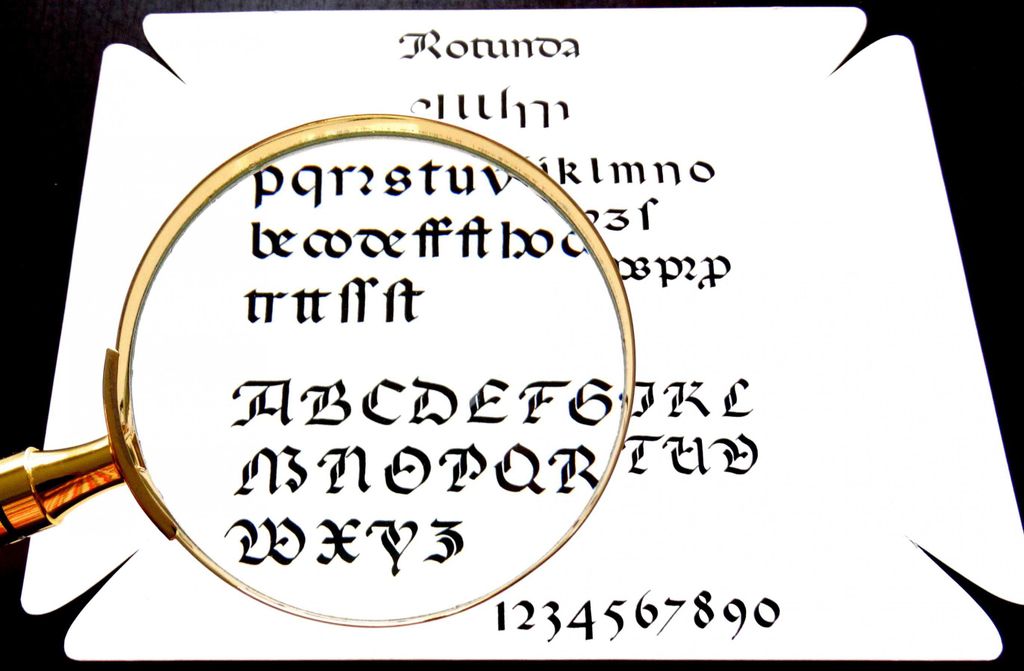 Rotunda
pqrꝛstuv iklmno
ʒſ
be co de ff ft ho pꝛ
tr tt ſſ ſt
ABCDEFG IKL
MNOPQR TUV
WXYZ
1234567890